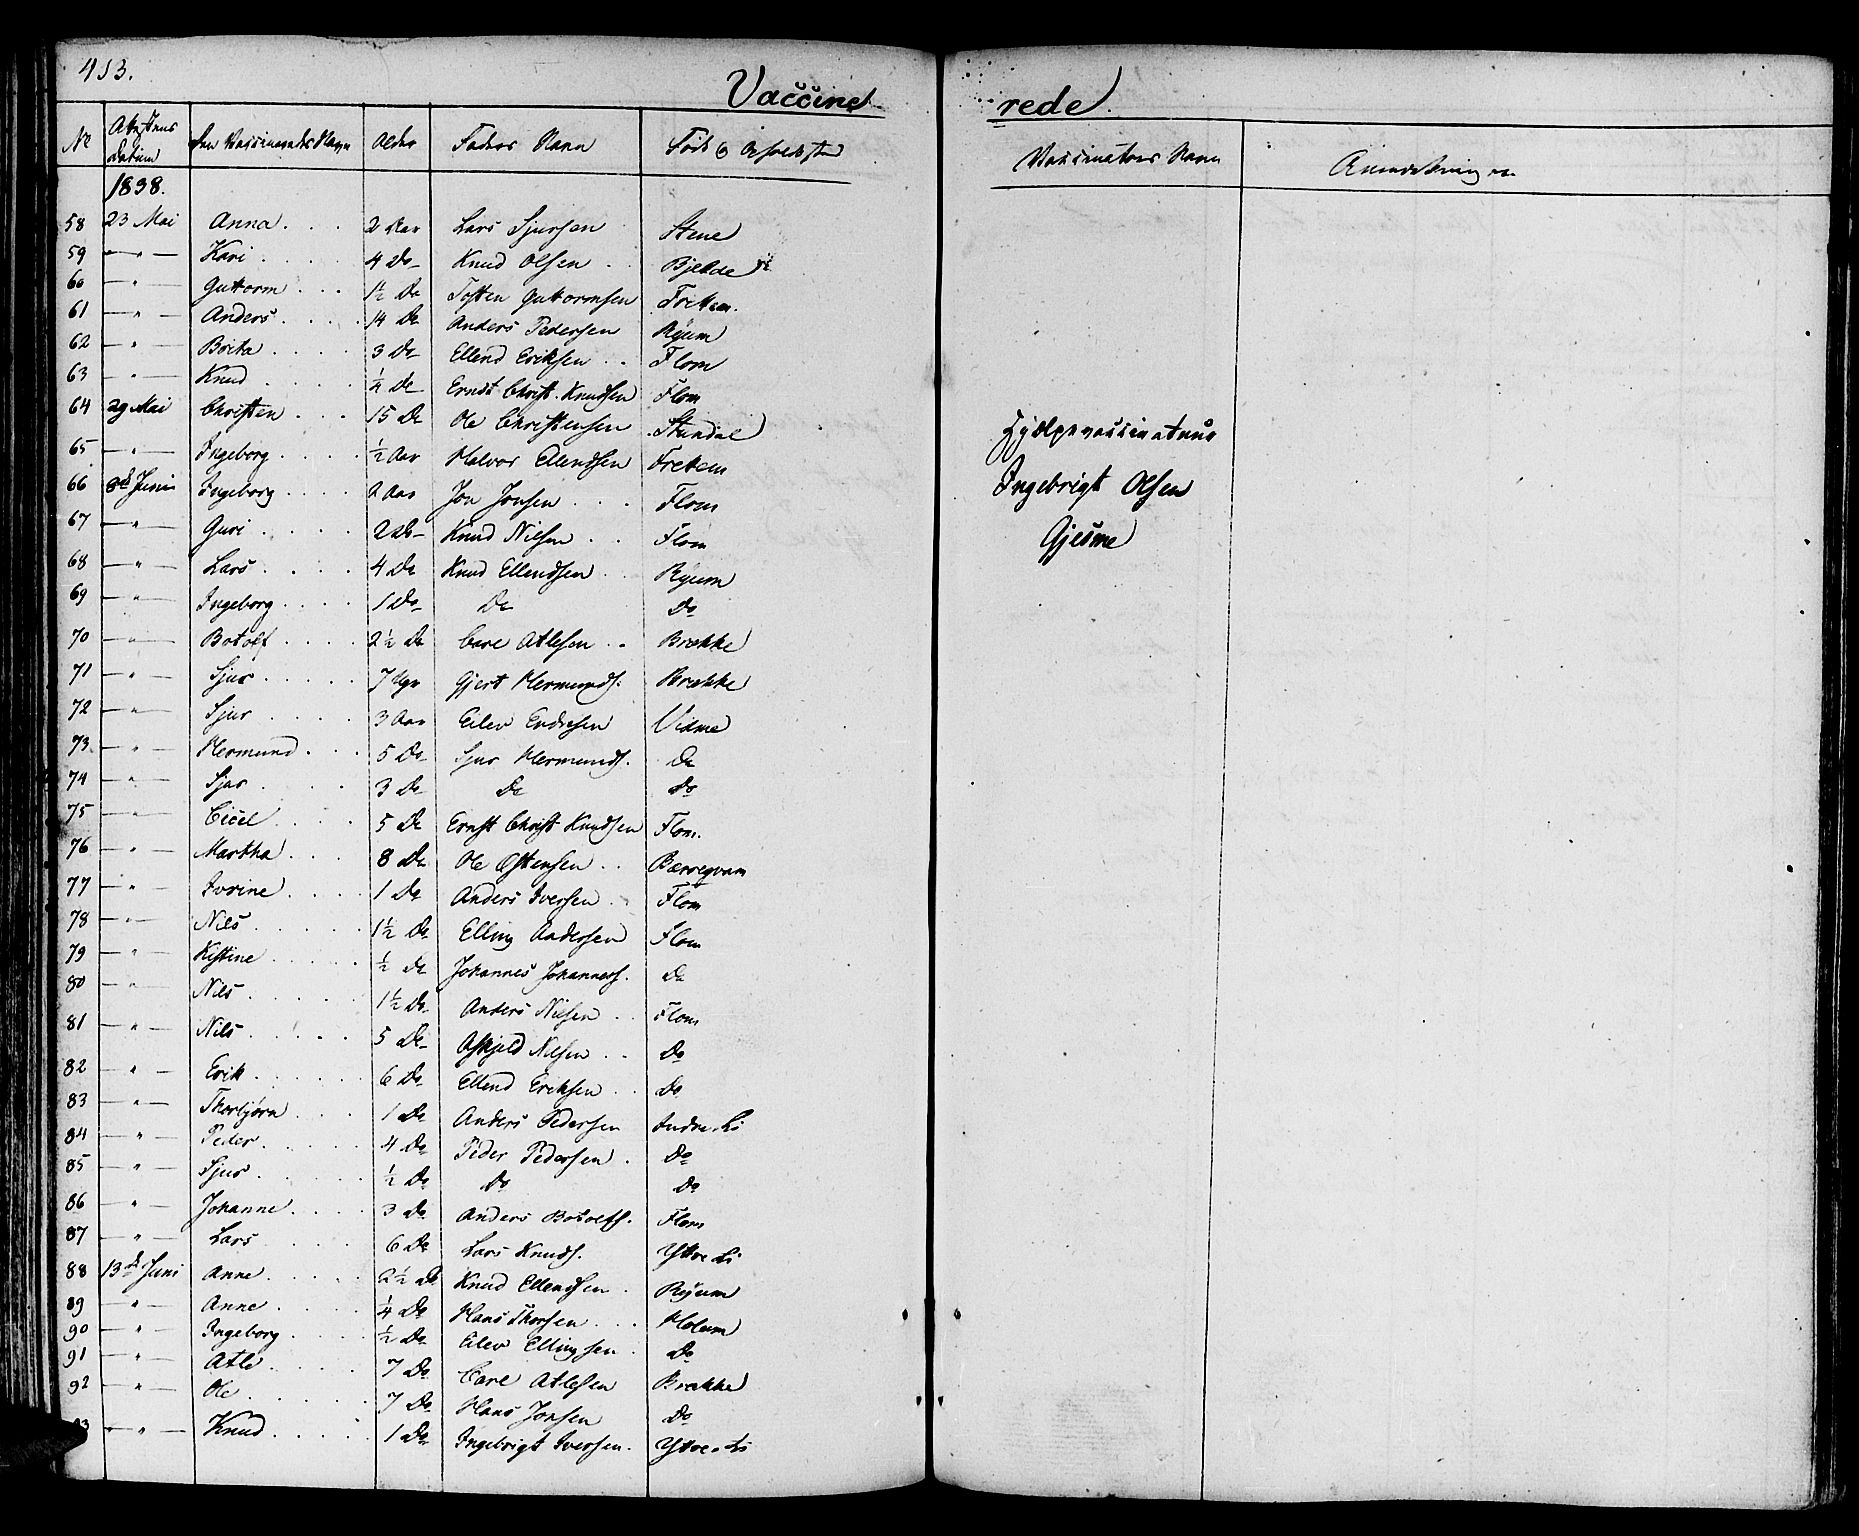 453.
Vaccinerede.
No Attestens Datum Den Vaccineredes Navn Alder Faders Navn Føde og Opholdssted Vaccinatørs Navn Anmærkninger
1838.
58 23 Mai Anna 2 Aar Lars Sjursen Stene
59 — " — Kari 4 Do Knud Olsen Bjelde
60 — " — Guttorm 1½ Do Tosten Guttormsen Fretem.
61 — " — Anders 14 Do Anders Pedersen Ryum
62 — " — Brita 3 Do Ellend Eriksen Flom
63 — " — Knud ¼ Do Erndst Christ. Knudsen Flom
64 29 Mai Christen 15 Do Ole Christensen Stundal
65 — " — Ingeborg ½ Aar Halvor Ellendsen Fretem
66 8de Juni Ingeborg 2 Aar Jon Jonsen Flom
67 — " — Guri 2 Do Knud Nilsen Flom
68 — " — Lars 4 Do Knud Ellendsen Ryum
69 — " — Ingeborg 1 Do Do Do
70 — " — Botolf 2½ Do Carl Atlesen Brække
71 — " — Sjur 7 Uger Gjert Hermunds. Brække
72 — " — Sjur 3 Aar Eilev Endresen Vidme
73. — " — Hermund 5 Do Sjur Hermunds. Do
74 — " — Sjur 3 Do Do Do
75 — " — Cicel 5 Do Ernst Christ Knudsen Flom.
76 — " — Martha 8 Do Ole Østensen Berregvam
77 — " — Ivrine 1 Do Anders Iversen Flom
78 — " — Nils 1½ Do Elling Andersen Flom
79 — " — Kistine ½ Do Johannes Johanness. Do
80 — " — Nils 1½ Do Anders Nilsen Flom
81 — " — Nils 5 Do Askjeld Nilsen Do
82 — " — Erik 6 Do Ellend Eriksen Do
83 — " — Thorbjørn 1 Do Anders Pedersen Indre Li
84 — " — Peder 4 Do Peder Pedersen Do
85 — " — Sjur ½ Do Do Do
86 — " — Johanne 3 Do Anders Botolfs. Flom
87 — " — Lars 6 Do Lars Knuds. Yttre Li
88 13de Juni Anne 2½ Do Knud Ellendsen Ryum
89 — " — Anne ¼ Do Hans Thorsen Holum
90 — " — Ingeborg ½ Do Eilev Ellingsen Do
91 — " — Atle 7 Do Carl Atlesen Brække
92 — " — Ole 7 Do Hans Jonsen Do
3 — " — Knud 1 Do Ingebrigt Iversen Yttre Li
Hjælpevaccinatør
Ingebrigt Olsen
Gjesme